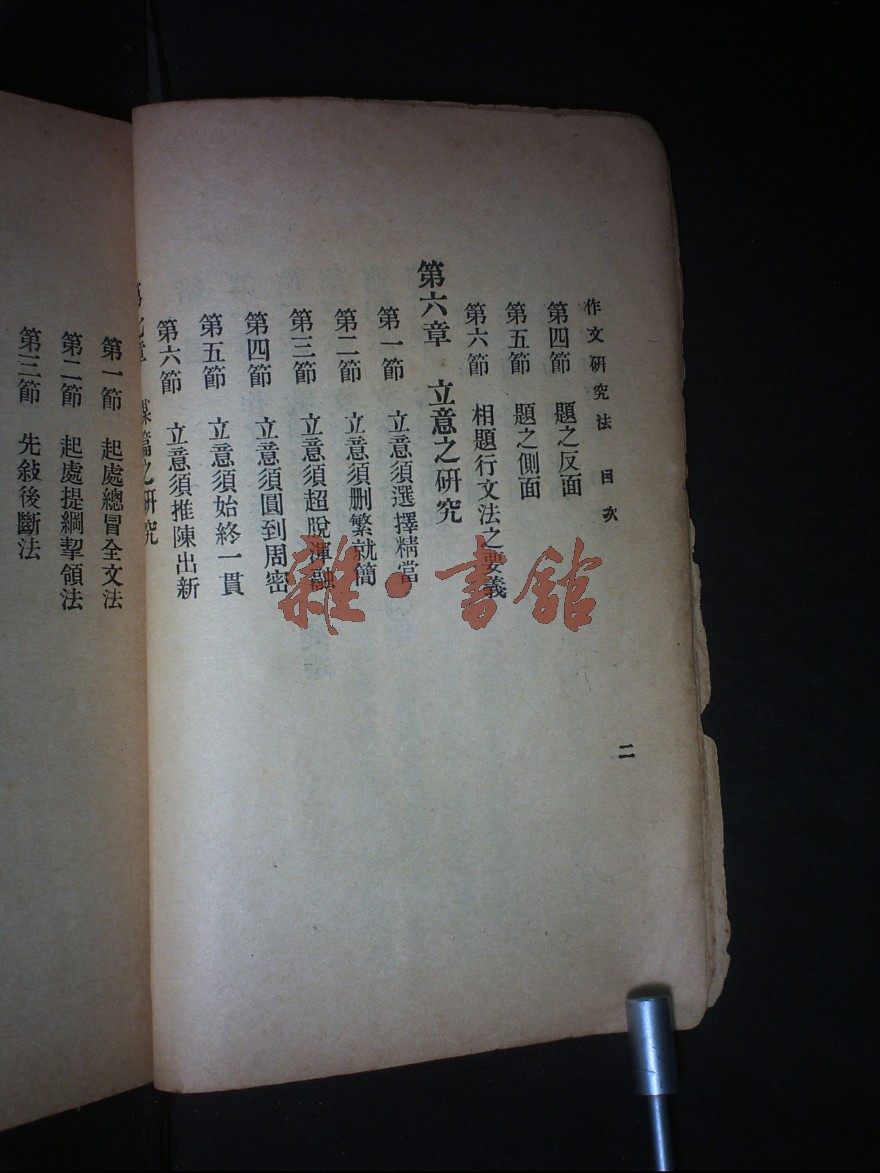 作文研究法 目次
二
第四節 題之反面
第五節 題之側面
第六節 相題行文法之要義
第六章 立意之研究
第一節 立意須選擇精當
第二節 立意須刪繁就簡
第三節 立意須超脫渾融
第四節 立意須圓到周密
第五節 立意須始終一貫
第六節 立意須推陳出新
章 謀篇之研究
第一節 起處總冒全文法
第二節 起處提綱挈領法
第三節 先敍後斷法
雜·書館